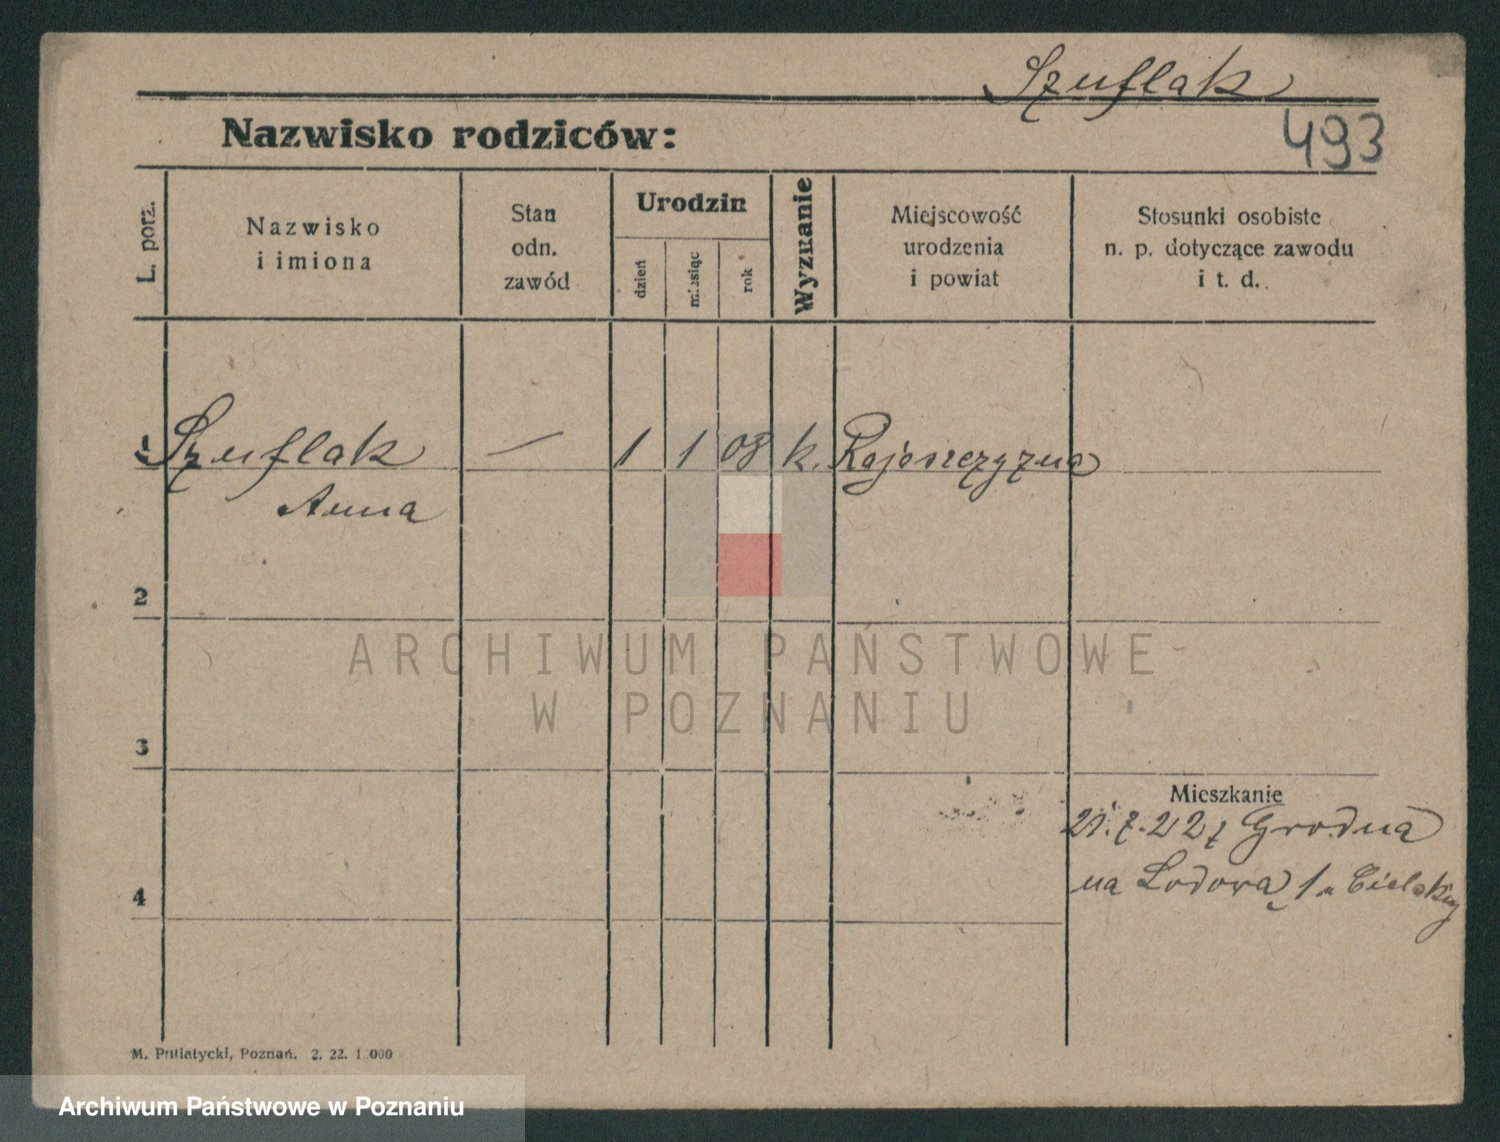 Szuflak
Nazwisko rodziców:
493
L. porz.
Nazwisko
i imiona
Stan
odn.
zawód
Urodzin
dzień
miesiąc
rok
Wyznanie
Miejscowość
urodzenia
i powiat
Stosunki osobiste
n. p. dotyczące zawodu
i t. d.
1 Szuflak — 1 1 08 k.
Anna
2
ARCHIWUM PAŃSTWOWE
W POZNANIU
3
Mieszkanie
21.7.22 z Grodna
na Lodową 1
4
M. Putiatycki, Poznań. 2. 22.
Archiwum Państwowe w Poznaniu